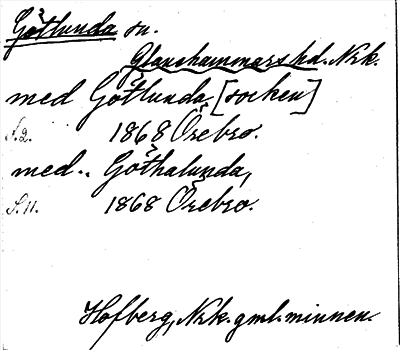 Götlunda sn.
Glanshammars hd. Nrk.
med Götlunda, [socken]
S. 2. 1868 Örebro.
med.. Göthalunda,
S. 11. 1868 Örebro.
Hofberg, Nrk. gml. minnen.